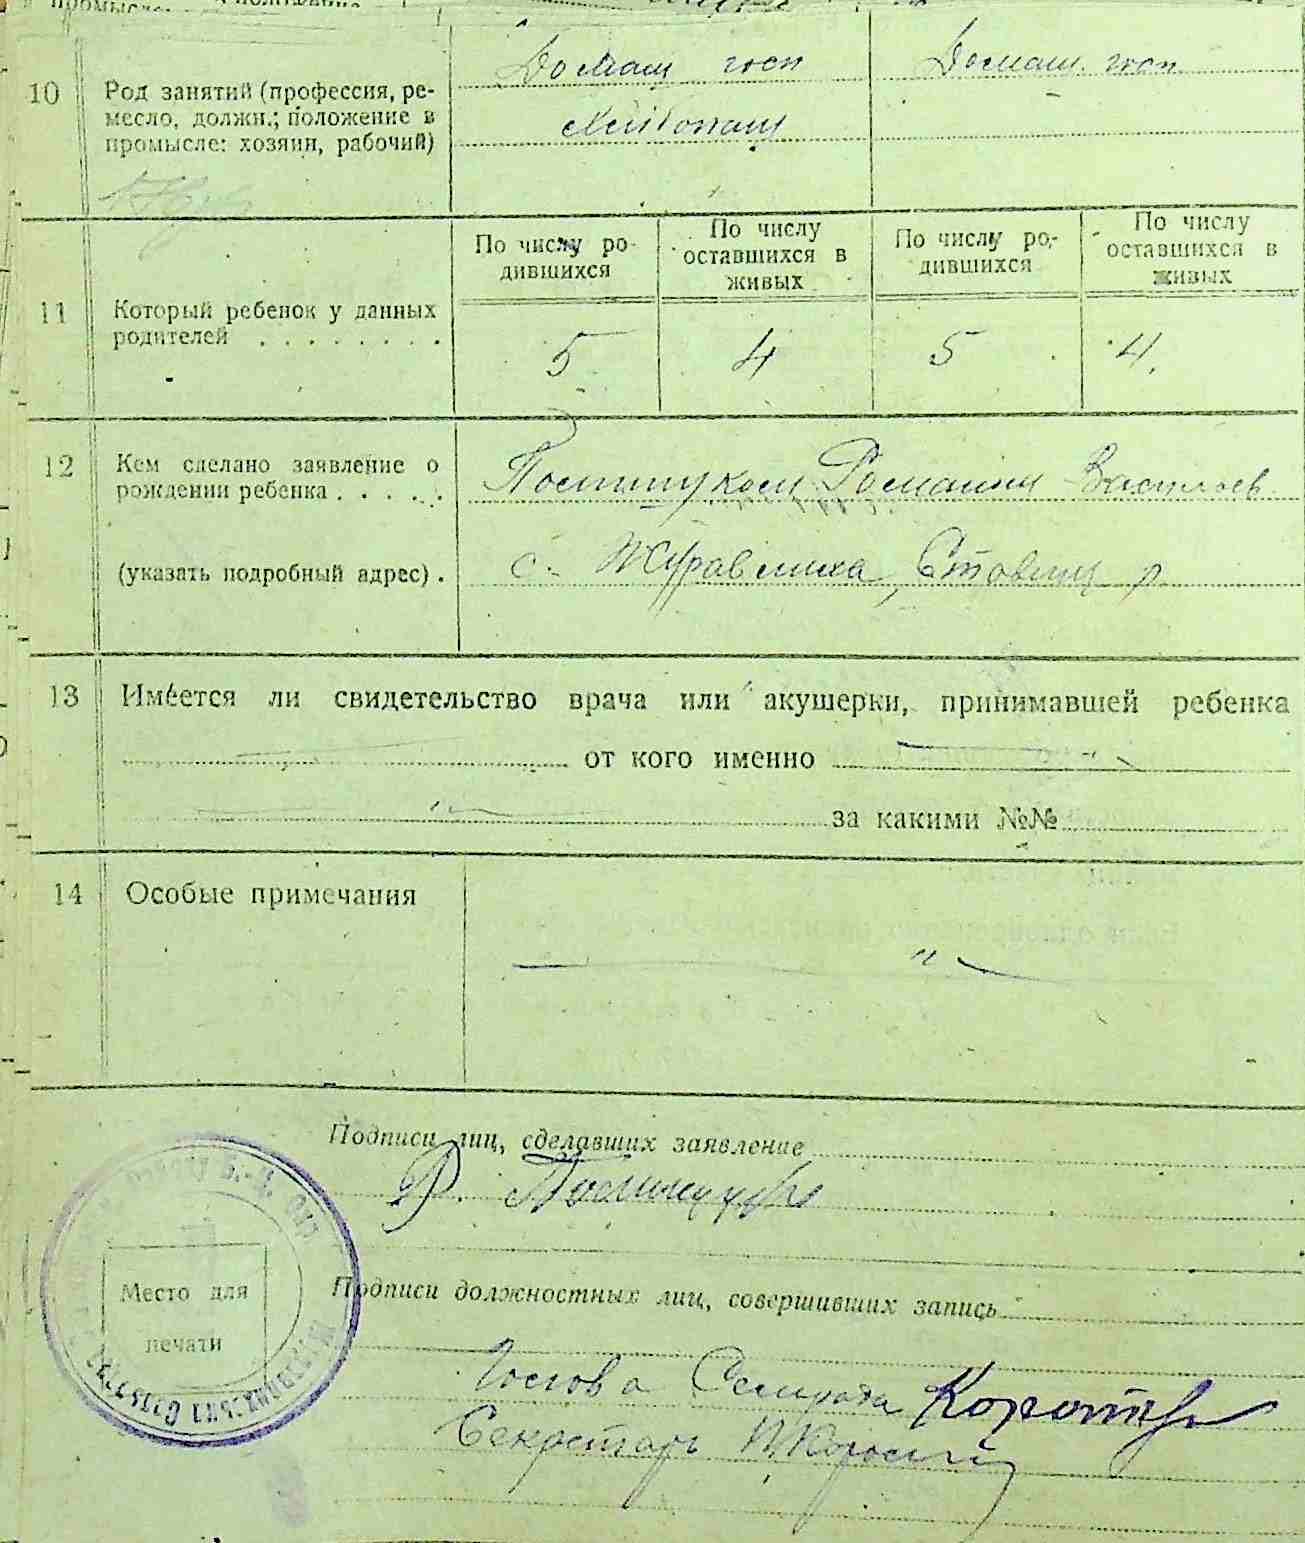 10 Род занятий (профессия, ре-
месло, должн.; положение в
промысле: хозяин, рабочий)
Домаш госп
Домаш. госп
хлибопаш
11 Который ребенок у данных
родителей . . . . . . . .
По числу ро-
дившихся
По числу
оставшихся в
живых
По числу ро-
дившихся
По числу
оставшихся в
живых
5 4 5 4.
12 Кем сделано заявление о
рождении ребенка . . . . .
(указать подробный адрес) .
Романом Васильев
с. Журавлиха, Ставищ р
13 Имеется ли свидетельство врача или акушерки, принимавшей ребенка
от кого именно
за какими №№
14 Особые примечания
Подписи лиц, сделавших заявление
Р.
Место для
печати
Подписи должностных лиц, совершивших запись
Голова Сельради
Секретарь